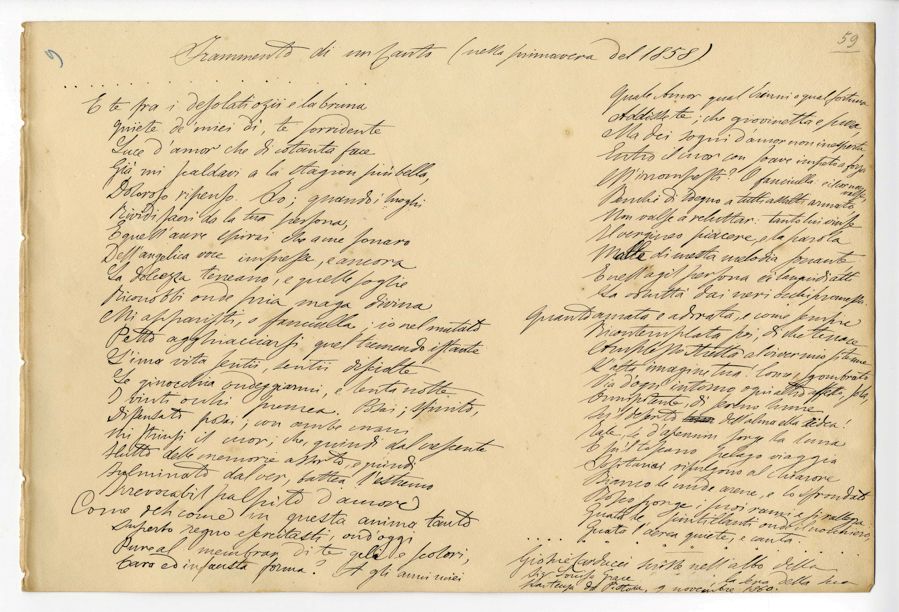 9
59
Frammento di un Canto (nella primavera del 1858)
E te fra i desolati ozii e la bruna
quiete de' miei dì, te sorridente
Luce d'amor che di costanta face
Già mi scaldavi a la stagion più bella,
Doloroso ripenso. Lo; quando i luoghi
Rividi sacri da la tua persona,
E quell'aure spirai che a me sonaro
Dell'angelica voce impresse, e ancora
La dolcezza teneano, e quelle soglie
Riconobbi onde pria maga divina
Mi apparisti, o fanciulla; io nel mutato
Petto agghiacciarsi quel tremendo istante
L'ima vita sentii, sentii disciolte
Le ginocchia ondeggiarmi, e lenta notte
I vinti occhi premea. Poi;
Disensato posai; con ambe mani
Mi strinsi il cuori; che, quindi dal crescente
flutto delle memorie assorto, e quindi
fulminato dal ver, battea l'estremo
Irrevocabil palpito d'amore
Come deh come in questa anima tanto
Imperto regno esercitasti, ond'oggi
Pure al membrar di te geli e scolori,
Cara ed infausta forma? A gli anni miei
Quale Amor qual t'anni o qual fortuna
Addisse te; che giovinetta e pura
Ma dei sogni d'amor non inesperta
Entro il cuor con soave impeto a forza
M'irrompesti? O fanciulla,
Benchè di sdegno a tutti affetti armato
Non valse a reluttar: tanto lui vinse
Il vergineo piacere, e la parola
Molle di mesta melodia sonante
E nell'agil persona i languidi atti
La voluttà dai neri occhi promessa
Quando amata e adorata, e come sempre
Ricontemplata poi, di che tenace
Complesso stretta al
L'alta imaginetta! Lor, sgombrato
Via d'ogni intorno ogni altro affetto, sola,
Onnipotente, di sereno lume
deserto dell'alma ella ridea!
Tale, se d'Apennin sorge la luna
E pe'l ceruleo pelago viaggia
Lontanar rifulgono al chiarore
Bianco le nude arene, e lo sfrondato
Bosco porge i suoi rami e si rallegra:
Guarda le scintillanti onde il nocchiero,
Guata l'aerea quiete; e canta.
Giosuè Carducci scrisse nell'albo della
Sig. Louisa Grace la sera della sua
partenza da Pistoia, 9 novembre 1860.